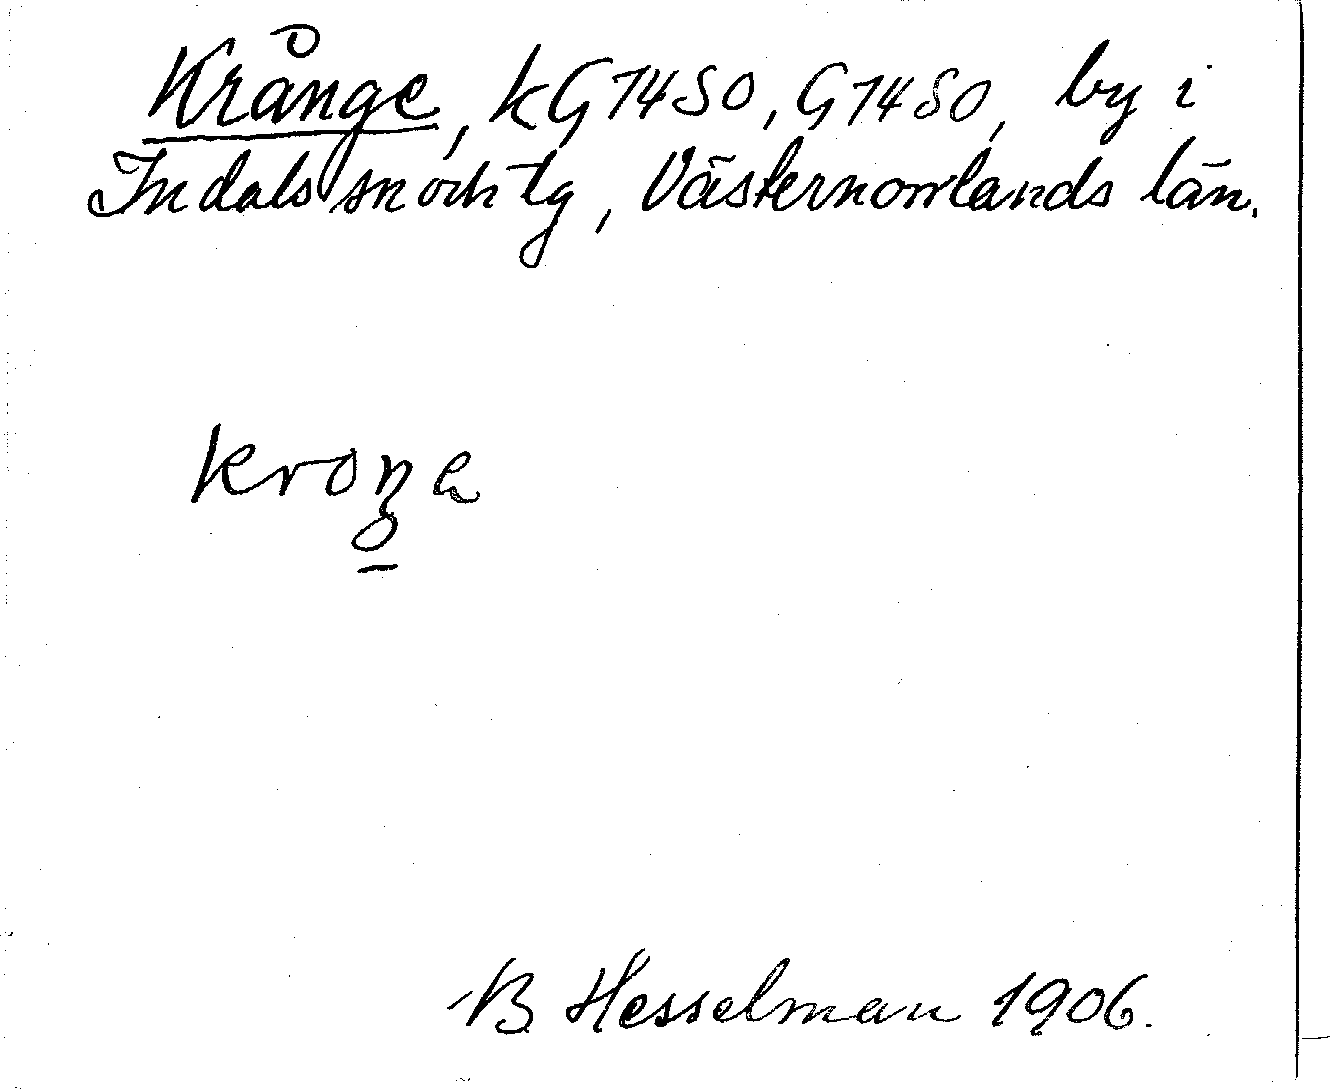 Krånge, kG 1480, G 1480, by i
Indals sn och tg, Västernorrlands län.
kroŋe
B Hesselman 1906.